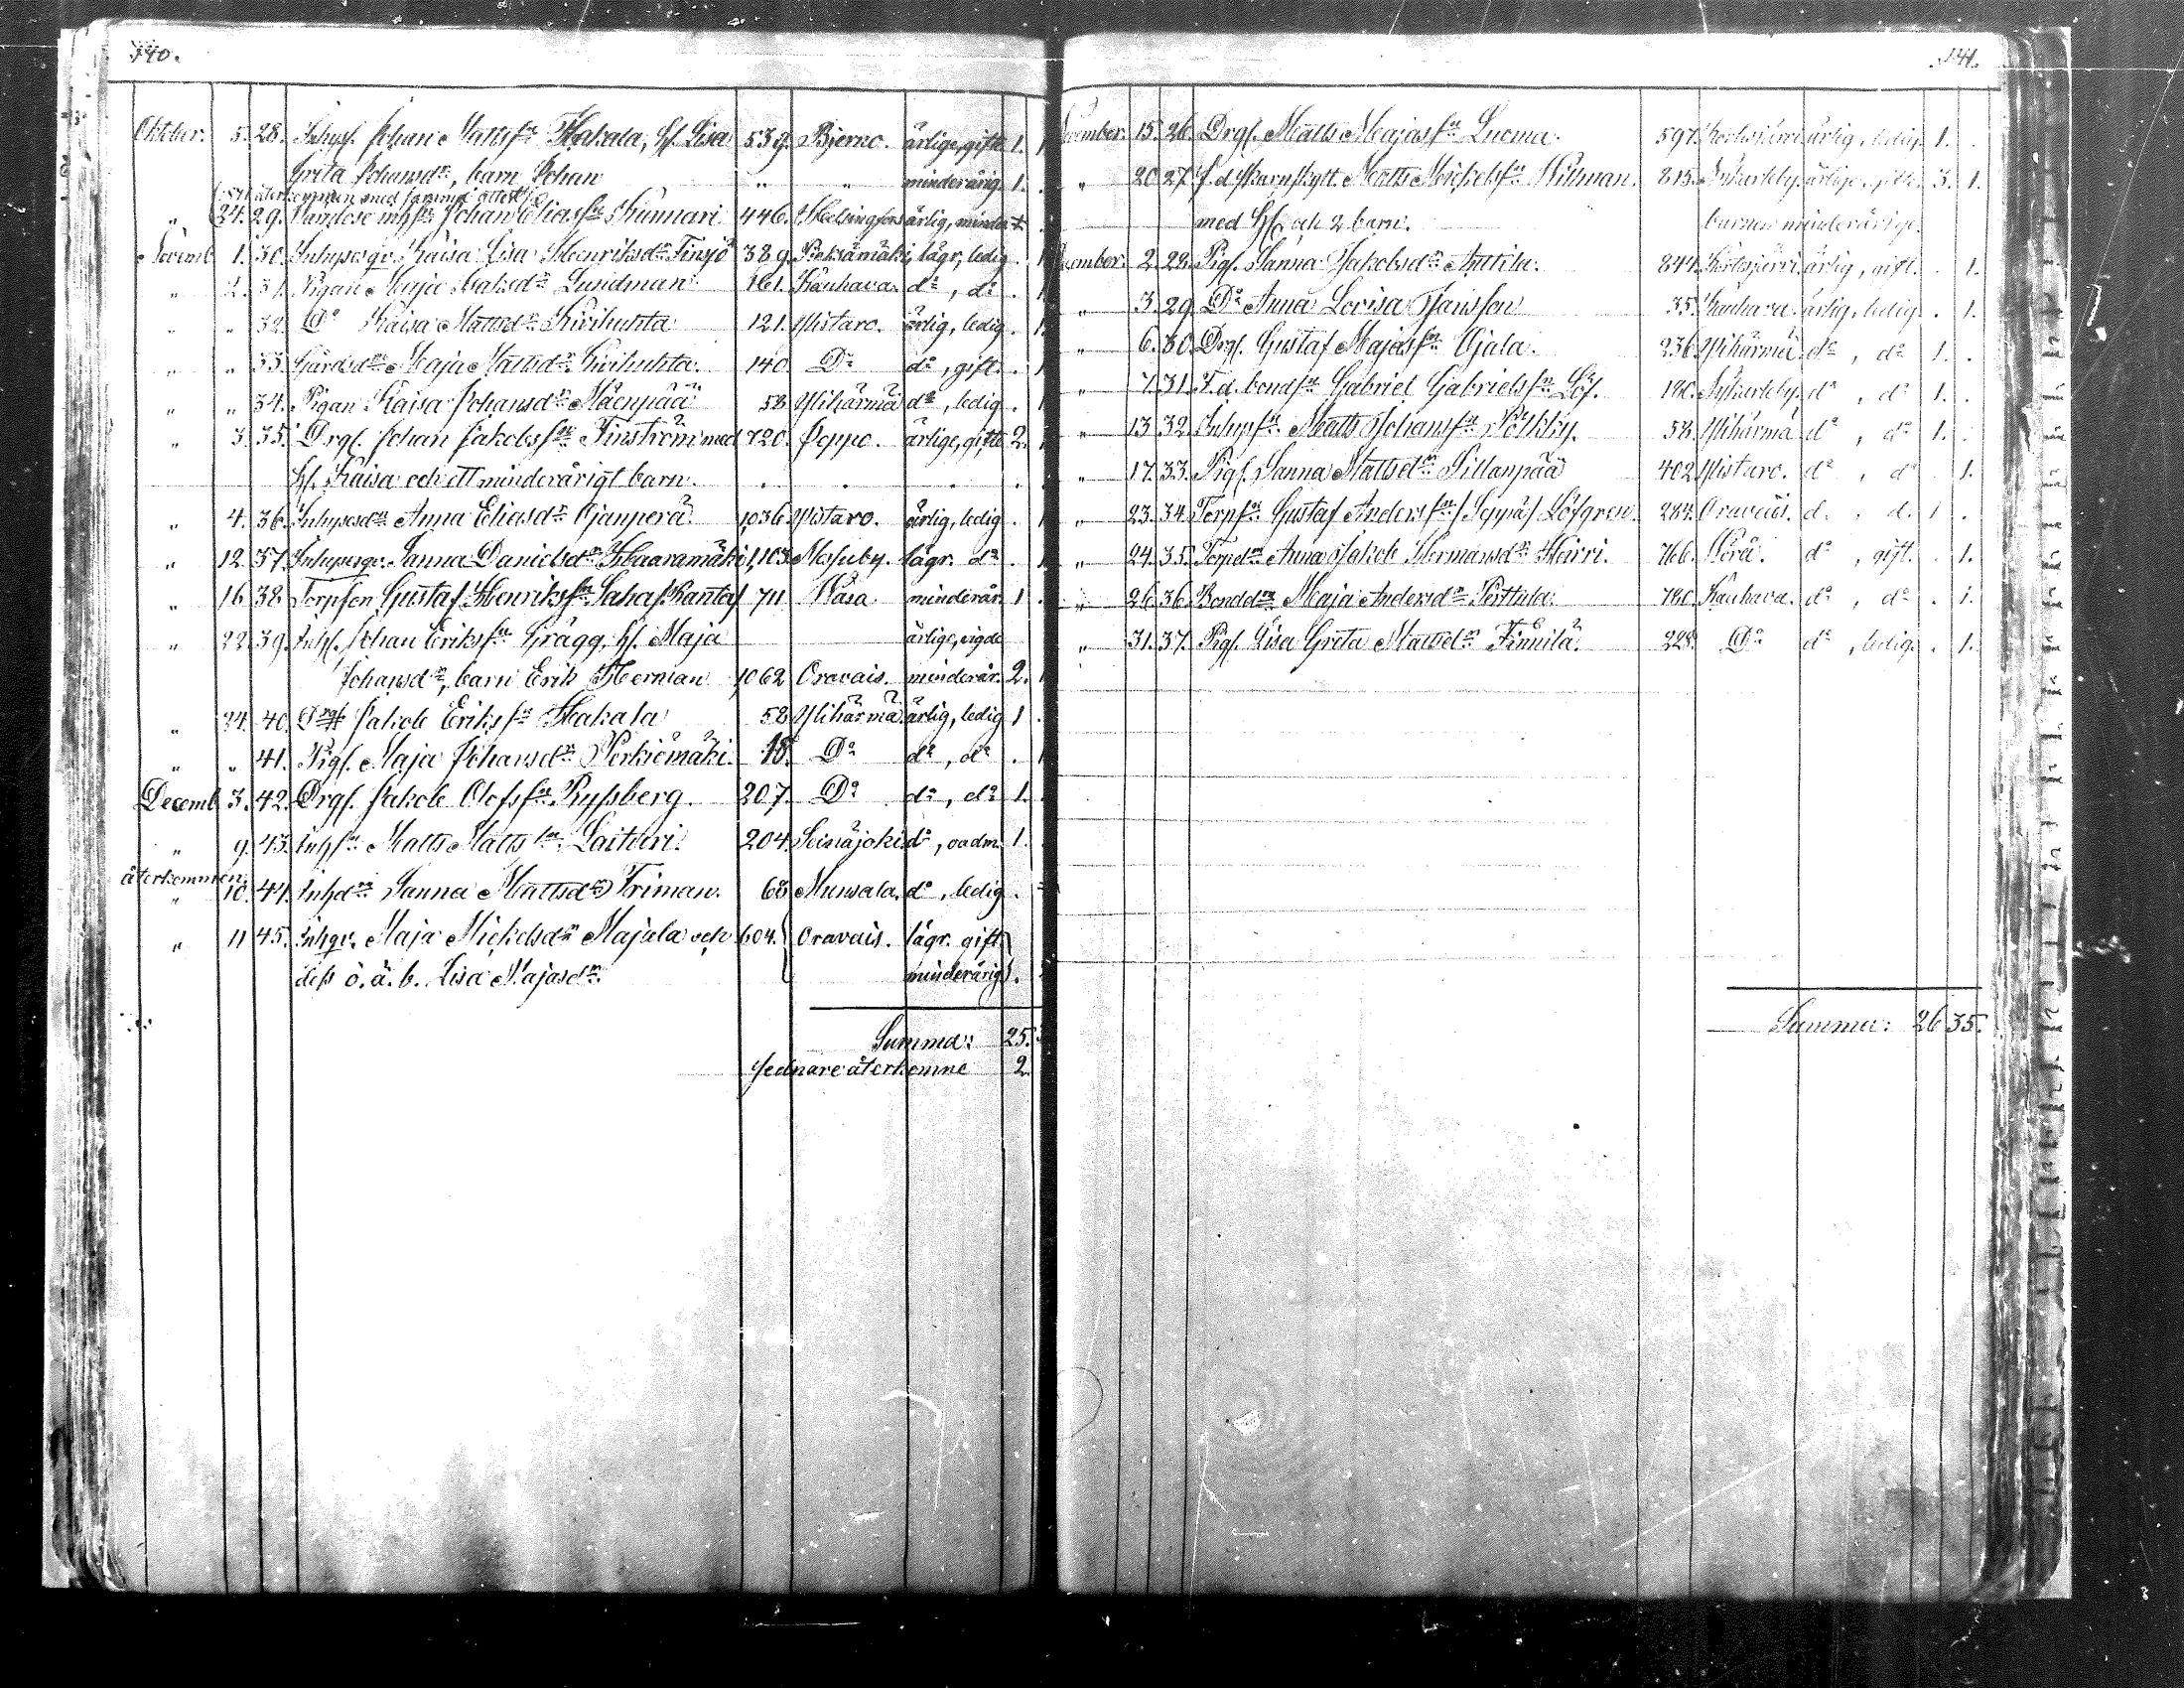 140.
Oktober. 5. 28. Inhyss. Johan Mattsson Hakala, h. Lisa 539. Bjerno. ärlige, gifte 1. 1
Greta Johansdr, barn Johan " " minderårig. 1.
återkommen med samma attest
" 24. 29. Johan Eliasson Kunnari 446. Helsingfors ärlig, minder
Novemb. 1. 30. Inhysesqv. Kaisa Lisa Henriksdr Finsjö 389. Pieksämäki, lägr., ledig. 1
" 2. 31. Pigan Maja Jakobsdr Sundman 161. Kauhava. do, do. 1
" " 32. Do Kaisa Mattsdr Kivihuhta 121. Ylistaro. ärlig, ledig. 1
" " 33. Maja Mattsdr Kivihuhta. 140. Do do, gift. 1
" " 34. Pigan Kaisa Johansdr Mäenpää 58 Ylihärmä do, ledig. 1
" 3. 35. Drgs. Johan Jakobsson Finström med 720. Jeppo. ärlige, gifte 2. 1
h. Kaisa och ett minderårigt barn. . . . .
" 4. 36. Inhysesdr Anna Eliasdr Ojanperä 1036. Ylistaro. ärlig, ledig. 1
" 12. 37. Inhysesqv. Sanna Danielsdr Haaramäki 1,103. Mossuby. lägr. do. 1
" 16. 38 Torpson Gustaf Henriksson Saha/Ranta/ 711 Wasa. minderår. 1 .
" 22. 39. Inhs. Johan Eriksson Grägg, h. Maja ärlige, vigde
Johansdr, barn Erik Herman 1062 Oravais. minderår. 2. 1
" 24. 40. Drgs Jakob Eriksson Hakala 58 Ylihärmä ärlig, ledig 1 .
" " 41. Pigs. Maja Johansdr Perkiömäki. 18. Do do, do . 1
Decemb 3. 42. Drgs. Jakob Olofsson Ryssberg. 207. Do do, do 1. .
" 9. 43. Inhson Matts Mattsson Laituri. 204. Seinäjoki do, oadm. 1.
återkommen
" 10. 44. Inhdr Sanna Mattsdr Friman. 68 Munsala. do, ledig.
" 11 45. Inhqv. Maja Mickelsdr Majala och 604. Oravais. lägr. gift
dess o. ä. b. Lisa Majasdr. minderårig.
Summa: 25.
sednare återkomne 2.
141.
November. 15. 26. Drgs. Matts Majasson Luoma. 597. Kortesjärvi ärlig, ledig. 1. .
" 20 27. f. d. skarpskytt. Matts Mickelsson Killman. 815. Nykarleby. ärlige, gifte. 3. 1.
med h. och 2 barn. barnen minderårige.
December. 2. 28. Pigs. Sanna Jakobsdr Anttila. 844. Kortesjärvi ärlig, gift. . 1.
" 3. 29. Do Anna Lovisa Jansson 35. Kauhava. ärlig, ledig . 1.
" 6. 30. Drgs. Gustaf Majasson Ojala. 236. Ylihärmä do, do 1. .
" 7. 31. F. d. bondson Gabriel Gabrielsson Löf. 180. Nykarleby. do, do 1. .
" 13 32. Inhysson Matts Johansson Pölkky. 58. Ylihärmä do, do 1. .
" 17. 33. Pigs. Sanna Mattsdr Sillanpää 402 Ylistaro. do, do . 1.
" 23. 34. Torpson Gustaf Andersson /Seppä/ Löfgren. 284. Oravais. d., d. 1 .
" 24. 35. Torpdr Anna Jakob Hermansdr Heirri. 766. Wörå. do, gift. . 1.
" 26 36. Bonddr Maja Andersdr Perttula. 780. Kauhava. do, do. . 1.
" 31. 37. Pigs. Lisa Greta Mattsdr Finnilä. 228. Do do, ledig. . 1.
Summa: 26 35.